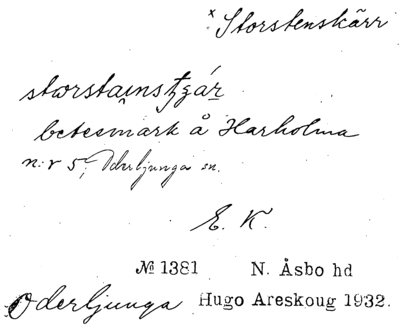 × Storstenskärr
storstainstgár
betesmark å Harholma
n:r 5, Oderljunga sn.
E. K.
№ 1381 N. Åsbo hd
Oderljunga Hugo Areskoug 1932.